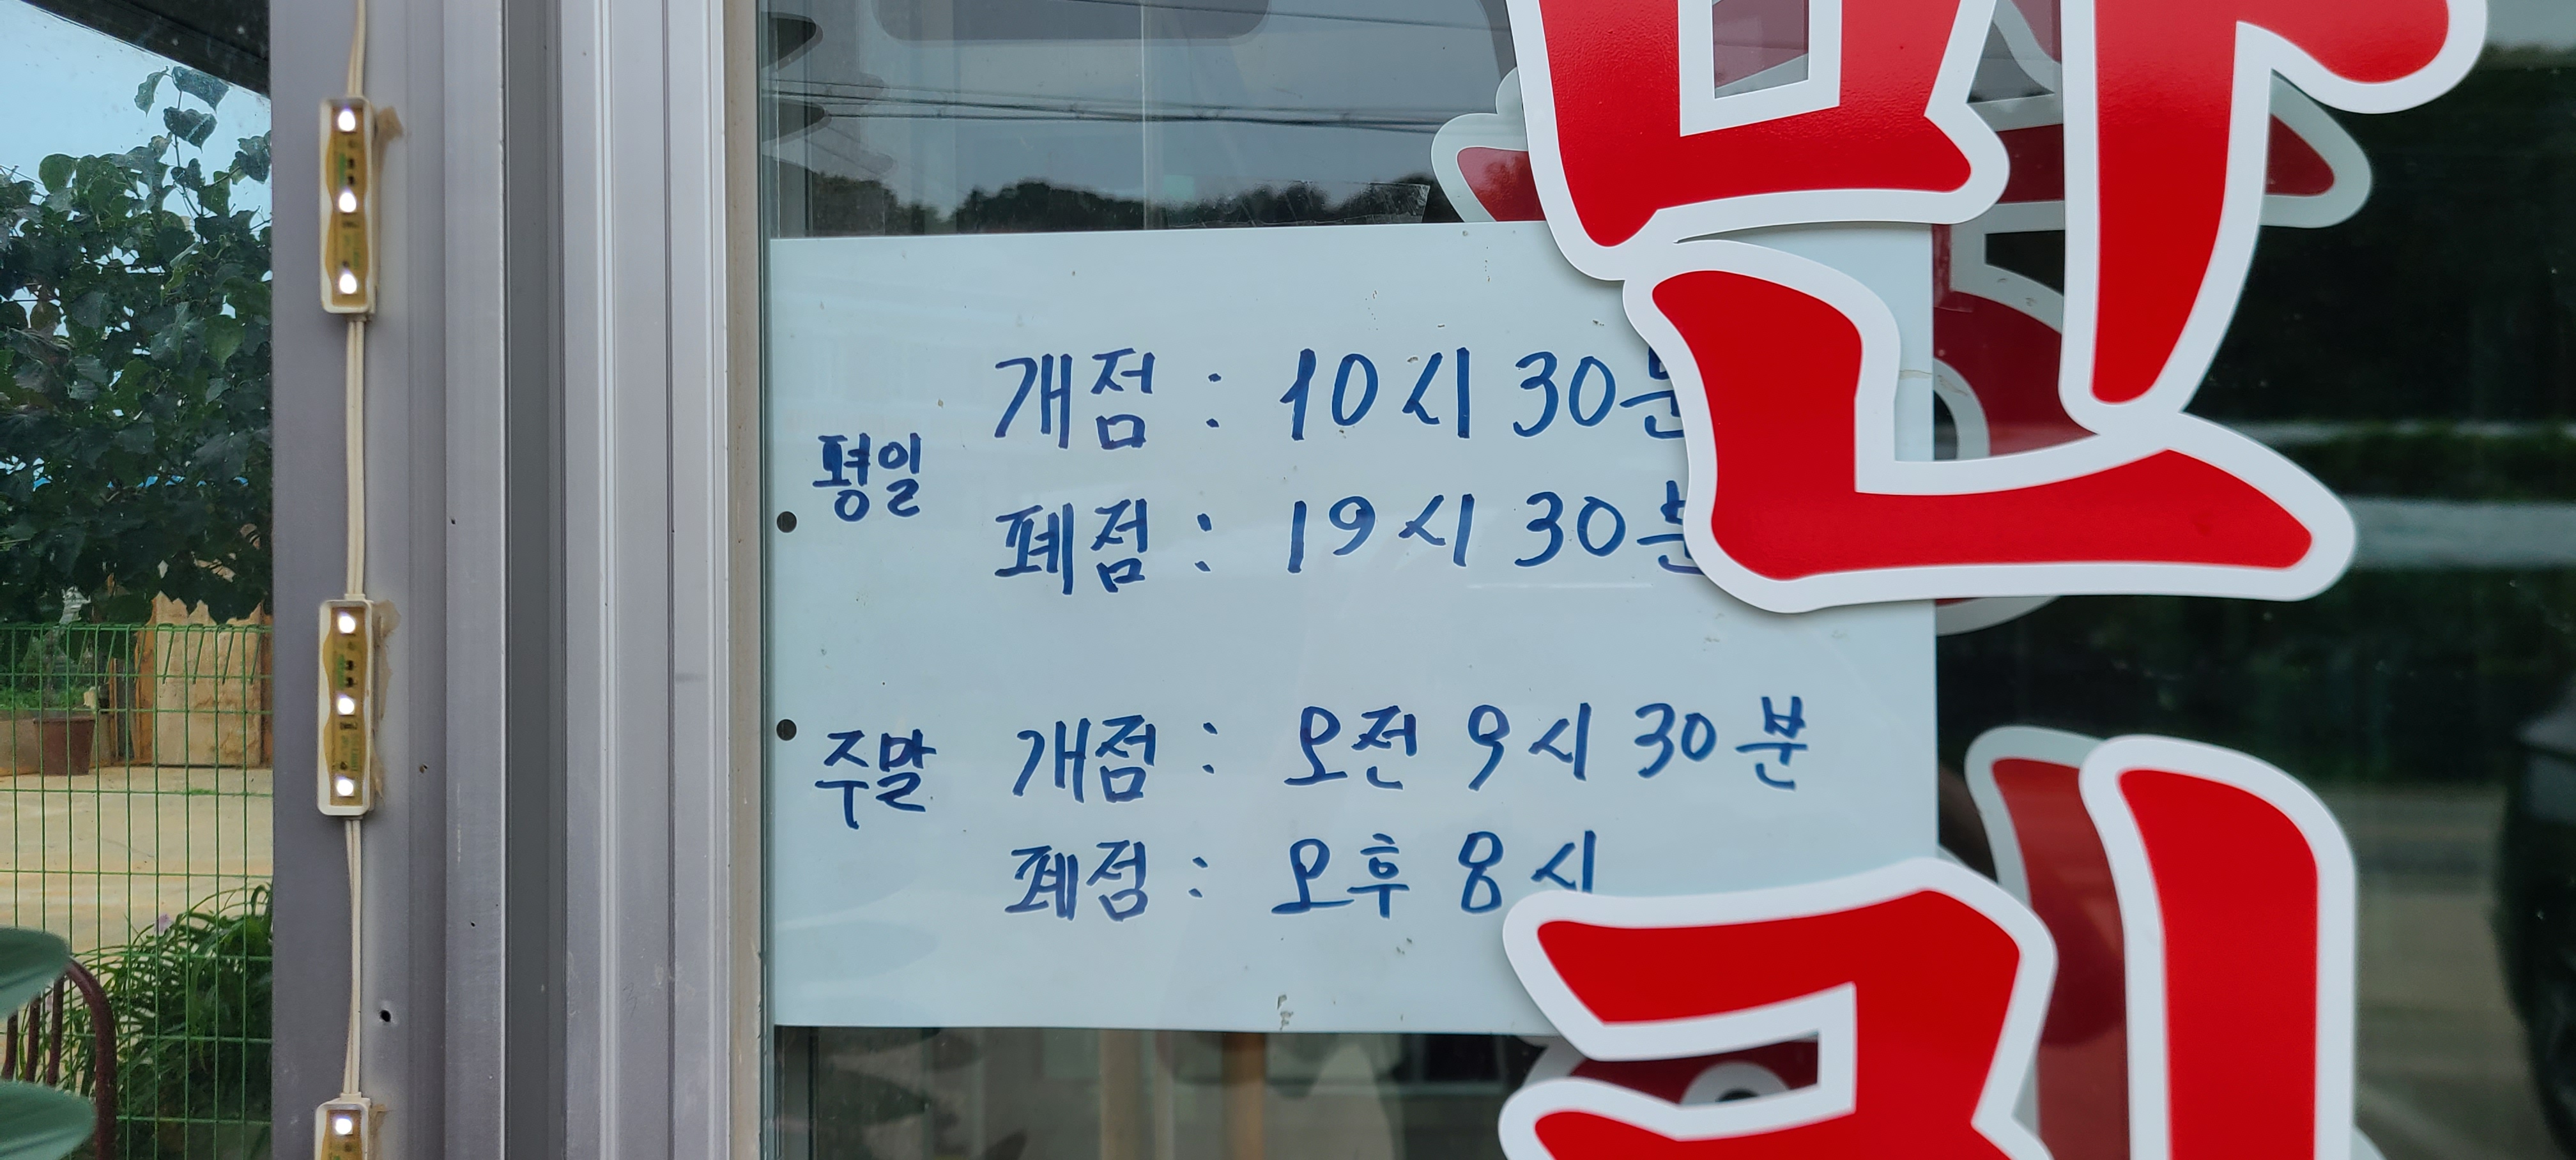 평일
개점 : 10시 30분
폐점 : 19시 30분
주말
개점 : 오전 9시 30분
폐점 : 오후 8시
만